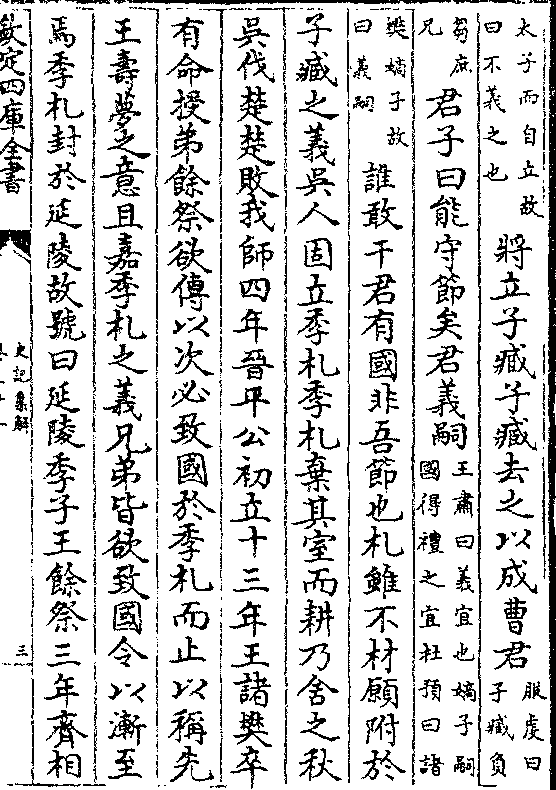 太子而自立故
曰不義之也
將立子臧子臧去之以成曹君
服虔曰
子臧負
芻庶
兄
君子曰能守節矣君義嗣
王肅曰義宜也嫡子嗣
國得禮之宜杜預曰諸
樊嫡子故
曰義嗣
誰敢干君有國非吾節也札雖不材願附於
子臧之義吳人固立季札季札棄其室而耕乃舍之秋
吳伐楚楚敗我師四年晉平公初立十三年王諸樊卒
有命授弟餘祭欲傳以次必致國於季札而止以稱先
王壽夢之意且嘉季札之義兄弟皆欲致國令以漸至
焉季札封於延陵故號曰延陵季子王餘祭三年齊相
欽定四庫全書
史記集解
三